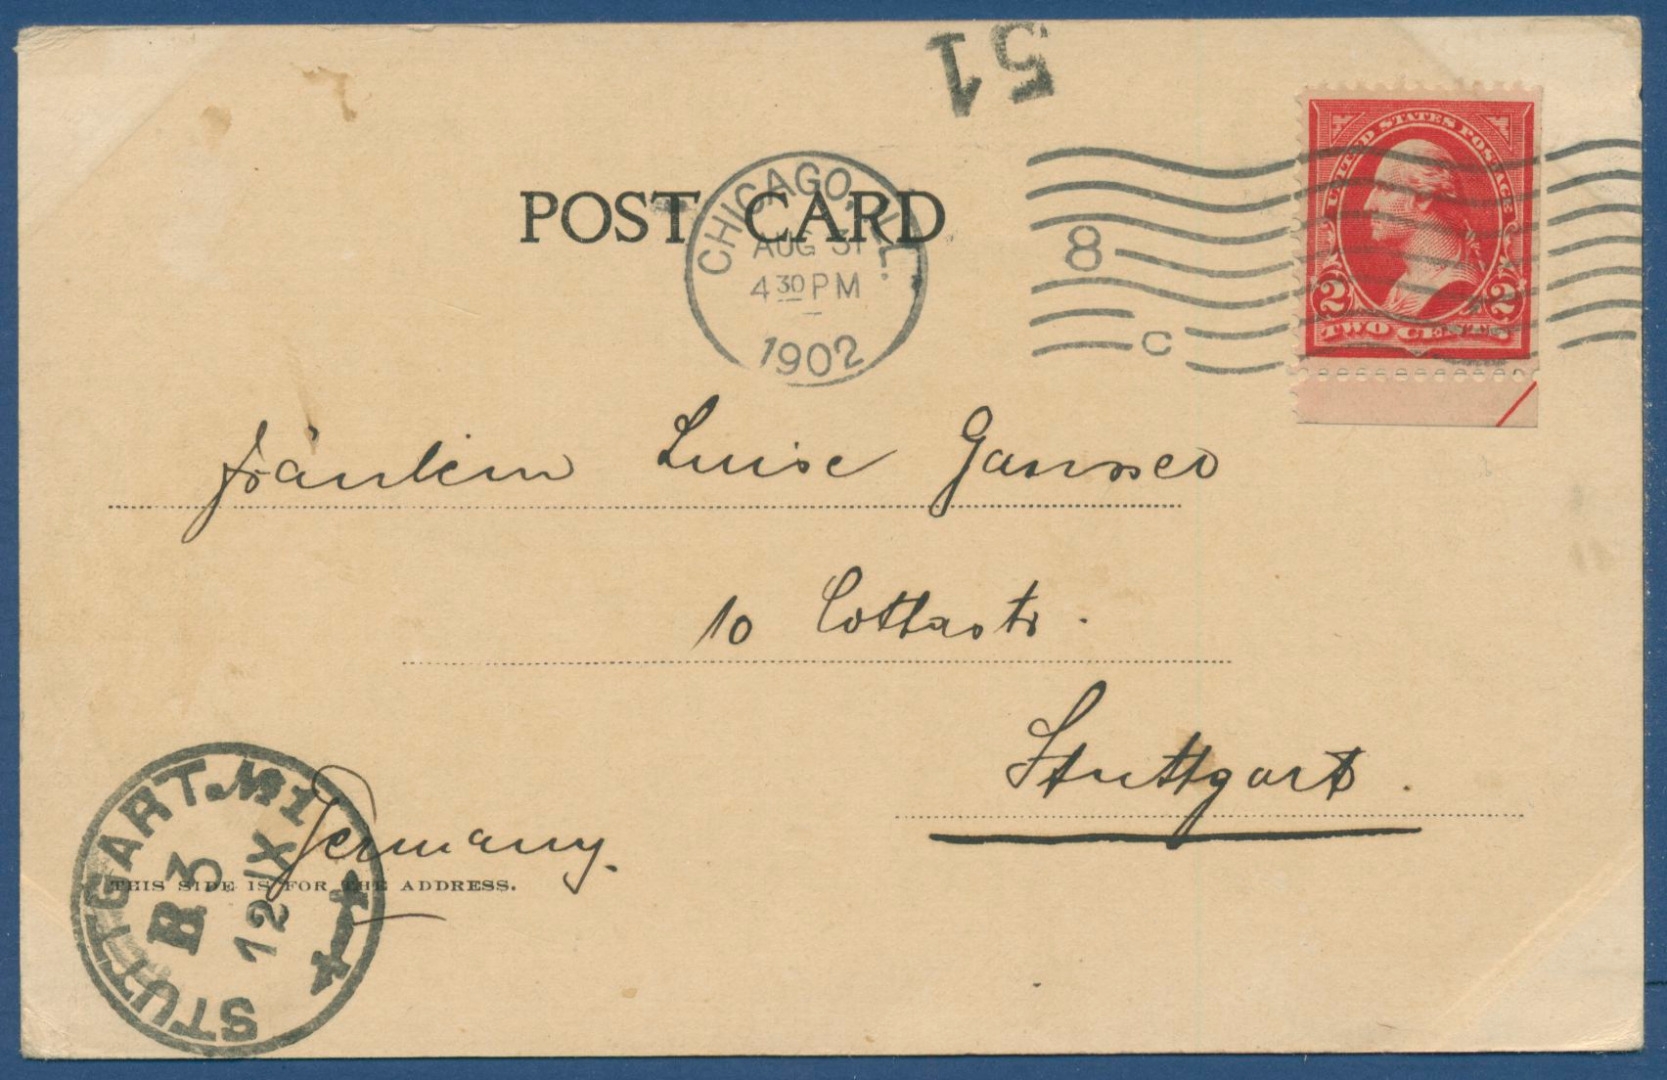 51
UNITED STATES POSTAGE
2 2
TWO CENTS
POST CARD
CHICAGO, ILL.
AUG 31
4 30 PM
1902
8
C
Fräulein Luise
10 Cottastr.
Stuttgart.
Germany.
THIS SIDE IS FOR THE ADDRESS.
STUTTGART № 1
3
12 IX